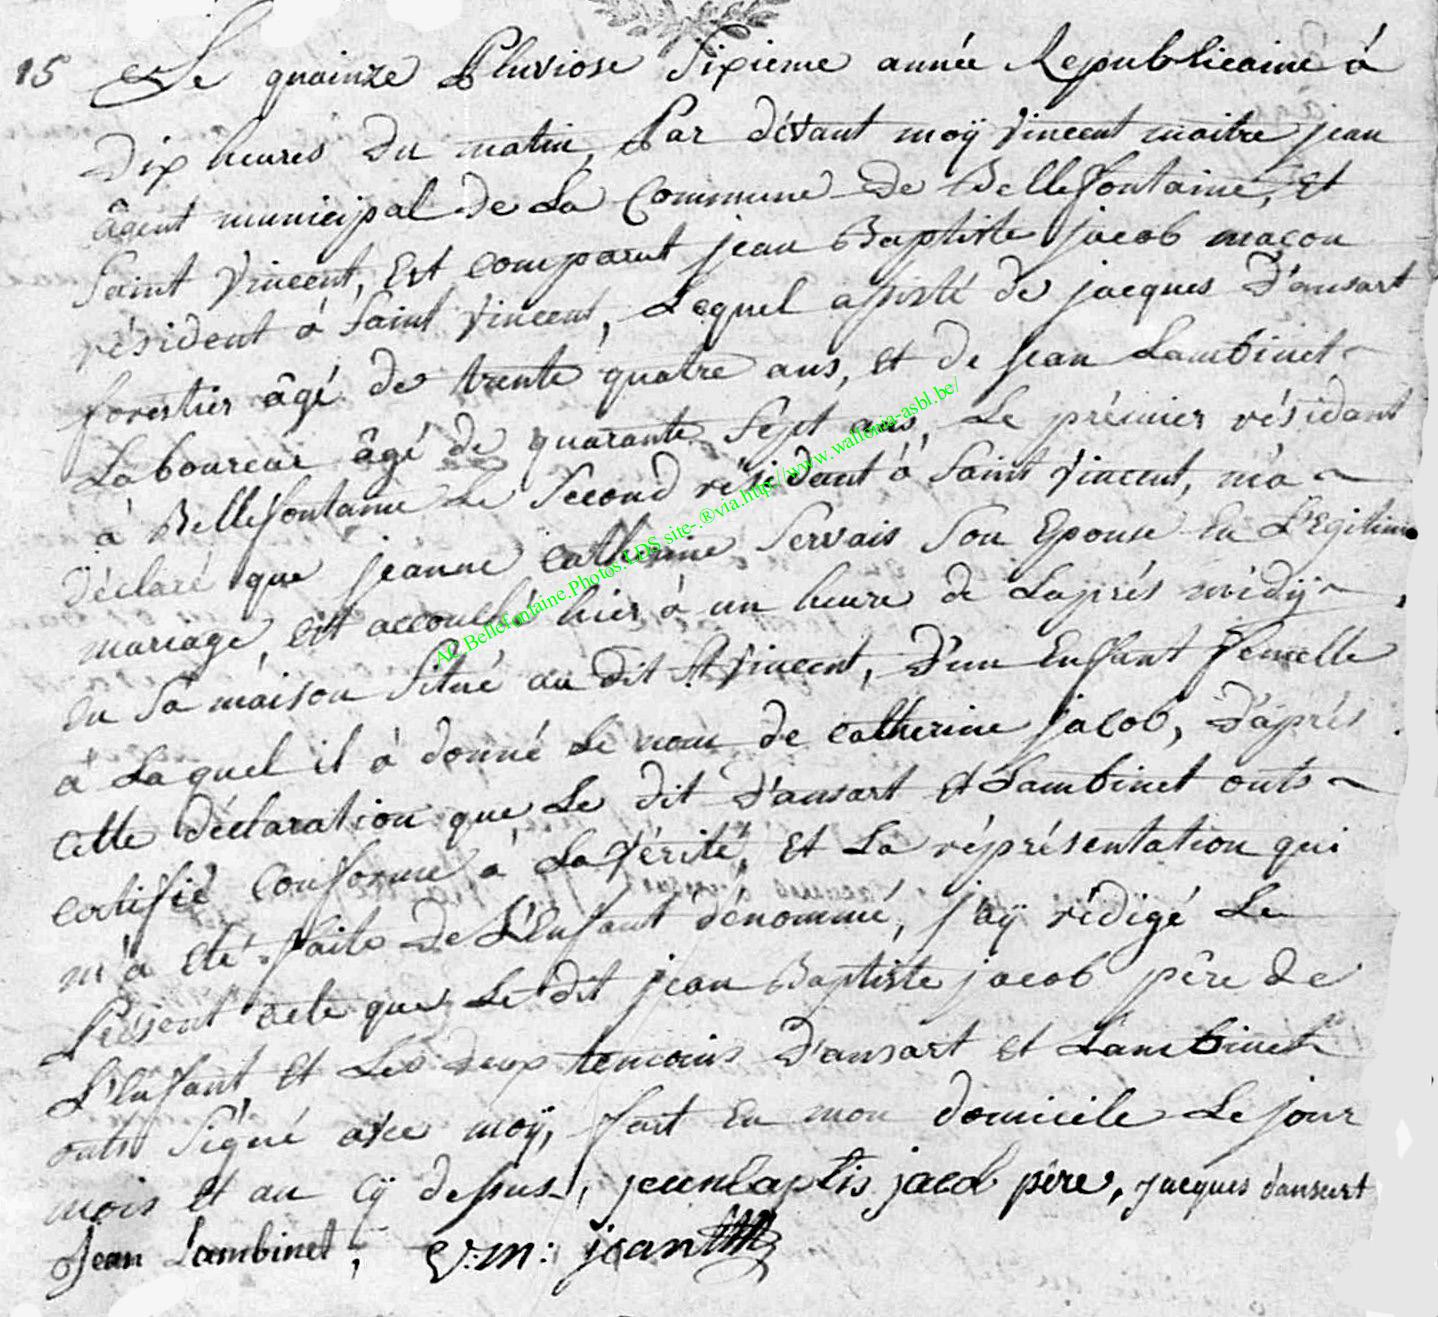 15 Le quainze Pluviose Sixieme année Republicaine à
Dix heures du matin, Par dévant moÿ Vincent maitre jean
âgent municipal de La Commune de Bellefontaine, et
Saint Vincent, Est comparut jean Baptiste jacob maçon
résident à Saint Vincent, Lequel assisté de jacques D'ansart
forestier âgé de trente quatre ans, et de jean Lambinet
Laboureur âgé de quarante Sept ans, Le prémier résidant
à Bellefontaine Le Second résidant à Saint Vincent, m'a
Déclaré que jeanne Catherine Servais Son Epouse En L'Egitime
mariage, est accouché hier à un heure de L'aprés midÿ
en Sa maison Situé au dit St Vincent, D'un Enfant femelle
à Laquel il à donné Le nom de catherine jacob, D'áprés
cette déclaration que Le dit D'ansart et Lambinet onts
certifié conforme à La Vérité, et La réprésentation qui
m'a eté faite De L'Enfant dénommé, j'aÿ rédigé Le
Présent acte que Le dit jean Baptiste jacob pêre de
L'Enfant, et Les deux temoins D'ansart et Lambinet
onts Signé avec moÿ, fait En mon domicile Le jour
mois et an cÿ dessus, jeenbaptis jacob pêre, jacques dansart
Jean Lambinet, V: m: jean
AC.Bellefontaine.Photos.LDS site-.®via.http://www.wallonia-asbl.be/